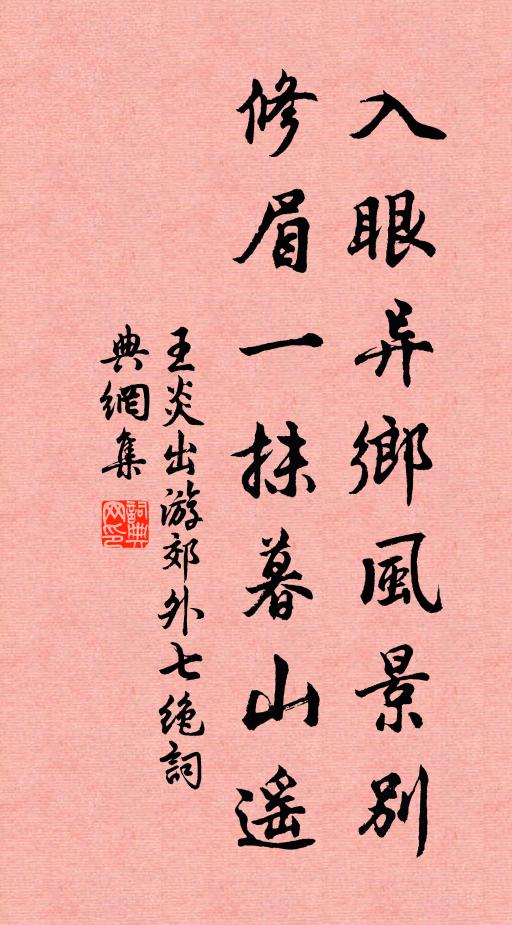 入眼异鄉風景别
修眉一抹暮山遥
王炎出游郊外七绝詞
典網集
詞典网印